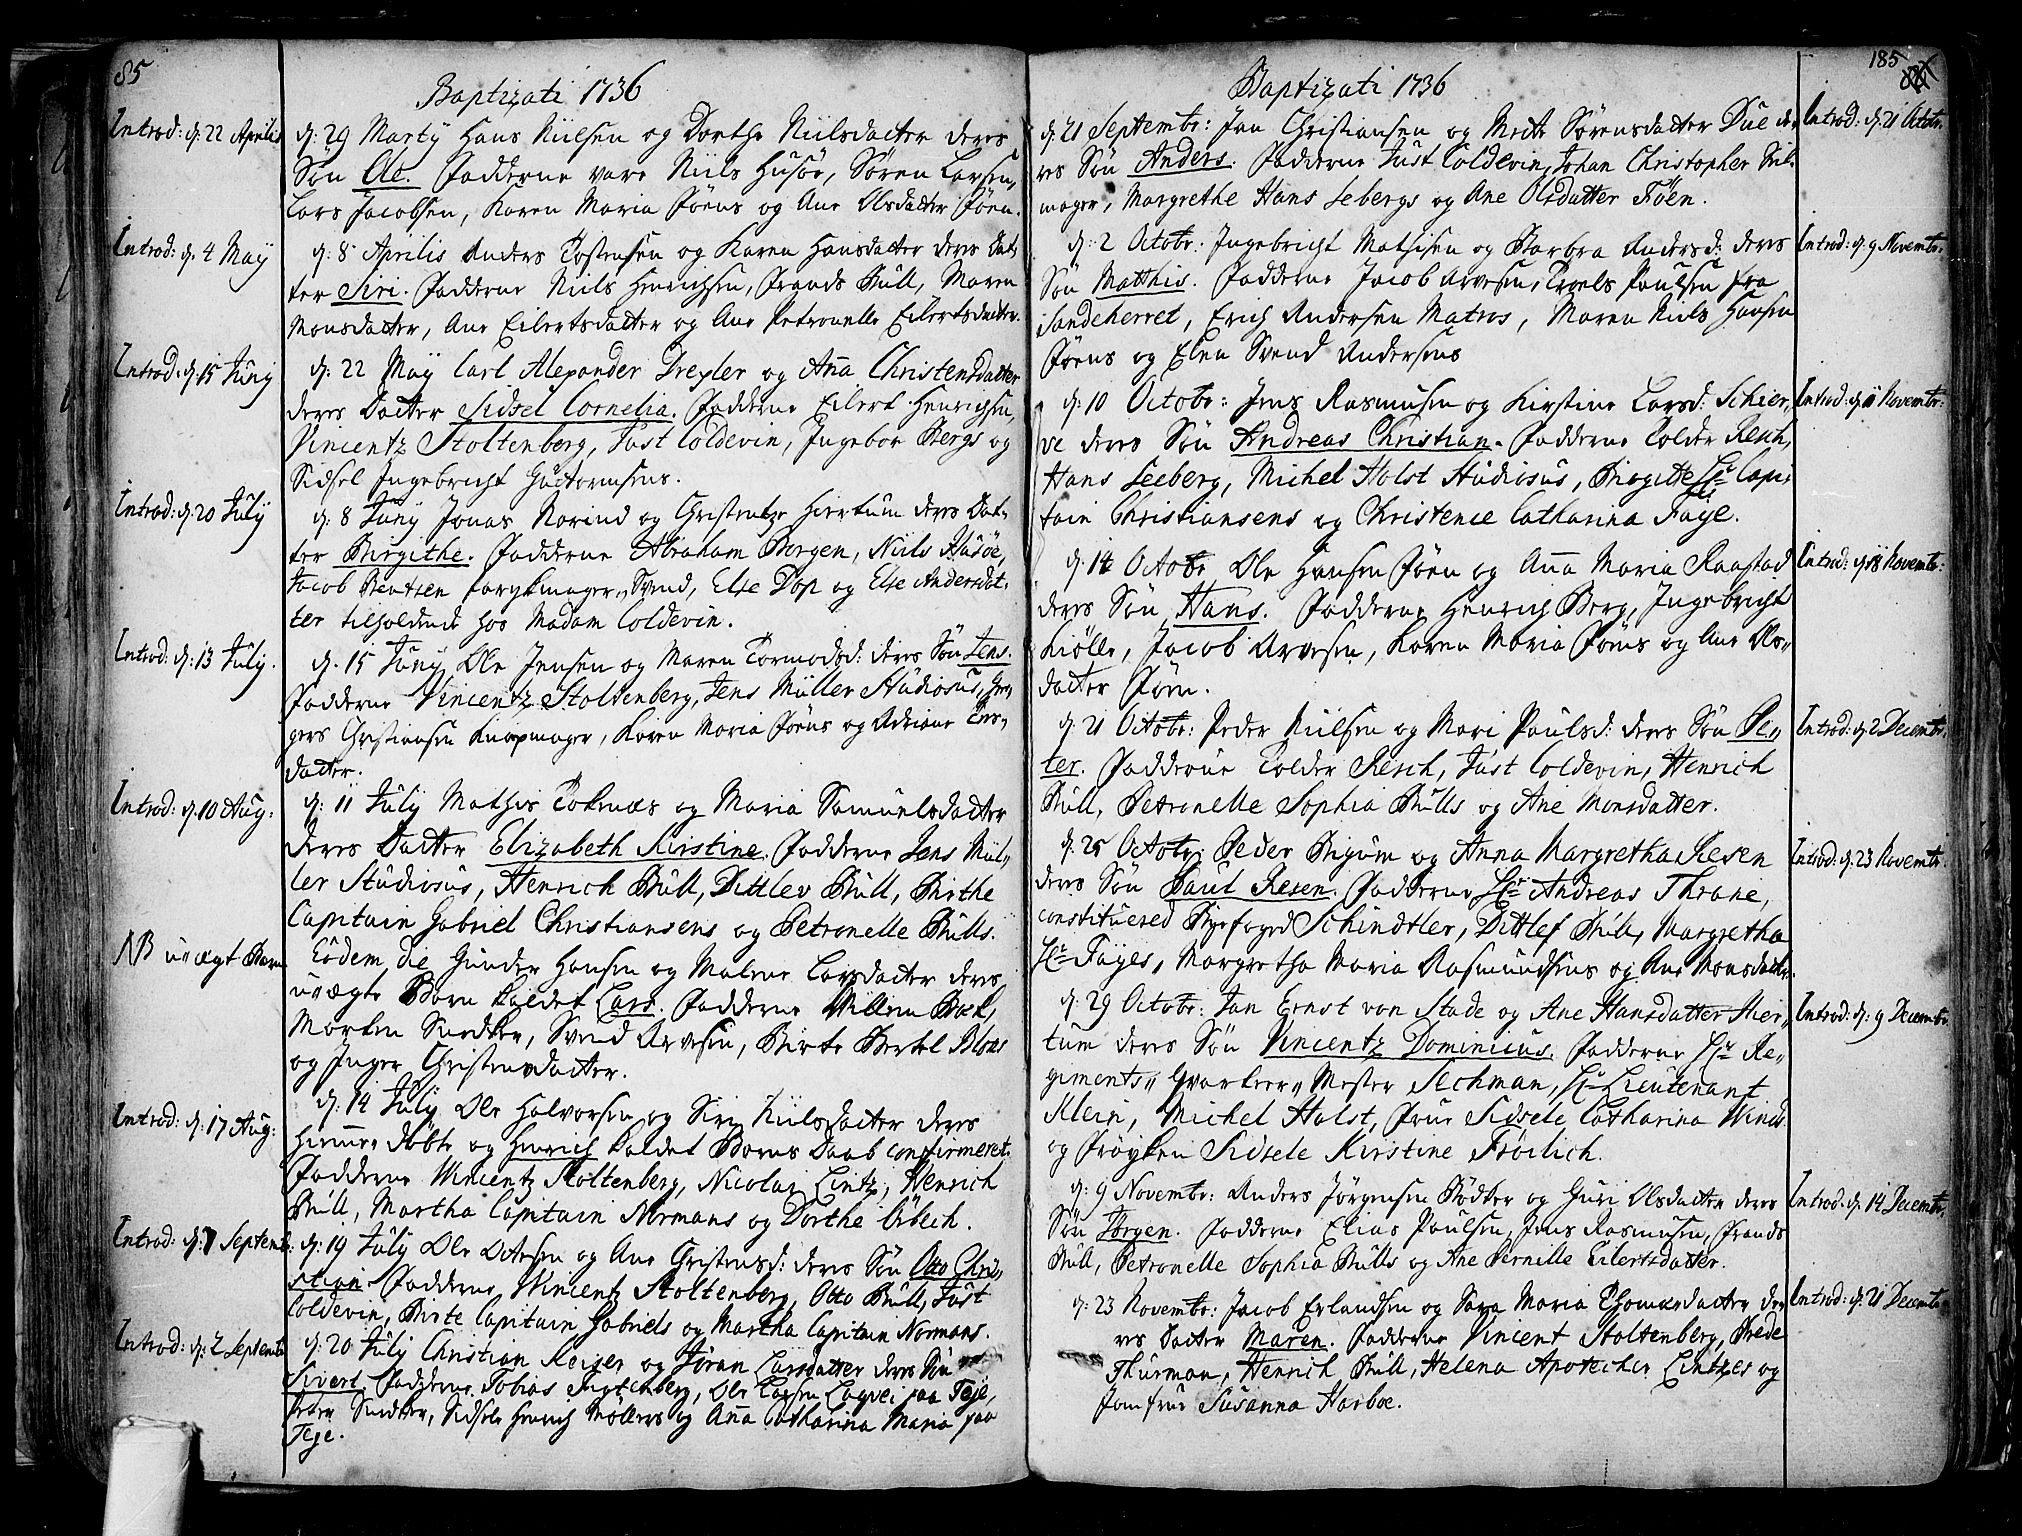 85
Baptizati 1736
Introd: d. 22 Aprilis
d: 29 Martÿ Hans Niilsen og Dorthe Niilsdatter deres
Søn Ole. Fadderne vare Niils Husöe, Sören Larsen,
Lars Jacobsen, Karen Maria Föens og Ane Olsdatter Föen.
Introd: d. 4 Maÿ
d: 8 Aprilis Anders Tostensen og Karen Hansdatter deres Dat-
ter Siri. Fadderne Niels Henrichsen, Frands Bull, Maren
Monsdatter, Ane Eilertsdatter og Ane Petronelle Eilertsdatter.
Introd: d: 15 Junÿ
d: 22 Maÿ Carl Alexander Drexler og Ana Christensdatter
deres Datter Sidsel Cornelia. Fadderne Eilert Henrichsen,
Vincentz Stoltenberg, Just Coldevin, Ingebor Bergs og
Sidsel Ingebricht Guttormsens.
Introd: d: 20 Julÿ
d: 8 Junÿ Jonas Norind og Christentze Hiertum deres Dat-
ter Birgithe. Fadderne Abraham Borgen, Niils Husöe,
Jacob Bentsen farykmager Svend, Else Dop og Else Andersdat-
ter tilholdende hos Madam Coldevin.
Introd: d: 13 Julÿ.
d. 15 Junÿ Ole Jensen og Maren Tormodsd: deres Søn Jens.
Fadderne Vincentz Stoltenberg, Jens Müller Studiosus, Gre-
gers Christiansen Knapmager, Karen Maria Föens og Adriane Tor-
datter.
Introd: d: 10 Aug:
d: 11 Julÿ Mathis Toknæs og Maria Samuelsdatter
deres Datter Elizabeth Kirstine. Fadderne Jens Mül-
ler Studiosus, Henrich Bull, Dittlev Bull, Birthe
Capitain Gabriel Christiansens og Petronelle Bulls.
NB uægt Barn
Eodem die Gunder Hansen og Malene Larsdatter deres
uægte Barn kaldet Lars. Fadderne Villem Bock,
Morten Snedker, Svend Arvesen, Birte Bertel Blous
og Inger Christensdatter.
Introd: d: 17 Aug:
d. 14 Julÿ Ole Halvorsen og Siri Niilsdatter deres
hiemme døbte og Henrich kaldet Barns Daab confirmeret.
Fadderne Vincentz Stoltenberg, Nicolai Lintz, Henrich
Bull, Martha Capitain Normans og Dorthe Urbech.
Introd: d: 7 Septemb:
d: 19 Julÿ Ole Ottesen og Ane Christensd: deres Søn Otto Chri-
stian Fadderne Vincentz Stoltenberg, Otto Bull, Just
Coldevin, Birte Capitain Gabriels og Martha Capitain Normans.
Introd: d: 2 Septemb
d: 20 Julÿ Christian Keiser og Jöran Larsdatter deres Søn
Sivert Fadderne Tobias, Ole Larsen Lagvei paa Teje,
Peter Snedker, Sidsele Henrich Möllers og Ana Catharina Maria paa
Teje.
185
Baptizati 1736
d: 21 Septembr: Jan Christiansen og Mette Sörensdatter Due de-
res Søn Anders. Fadderne Just Coldevin, Johan Christopher Sel-
mager, Margrethe Hans Sebergs og Ane Olsdatter Föen.
Introd: d: 21 Octobr.
d. 2 Octobr: Ingebricht Mathisen og Barbra Andersd: deres
Søn Matthis. Fadderne Jacob Arvesen, Troels Paulsen fra
Sandeherret, Erich Andersen Matros, Maren Niils Hansen
Föens og Elen Svend Andersens
Introd: d. 9 Novembr.
d: 10 Octobr: Jens Rasmusen og Kirstine Larsd: Schier-
ve deres Søn Andreas Christian. Fadderne Tolder Resch,
Hans Seeberg, Michel Holst Studiosus, Birgitte Hr. Capi-
tain Christiansens og Christence Catharina Faÿe.
Introd: d 11 Novembr:
d. 14 Octobr Ole Hansen Föen og Ana Maria Raastad
deres Søn Hans. Fadderne Henrich Berg, Ingebricht
Kiölle, Jacob Arvesen, Karen Maria Föens og Ane Ols-
datter Föen.
Introd: d 18 Novembr:
d: 21 Octobr: Peder Niilsen og Mari Paulsd: deres Søn Pe-
ter. Fadderne Tolder Resch, Just Coldevin, Henrich
Bull, Petronelle Sophia Bulls og Ane Monsdatter.
Introd: d: 2 Decembr.
d. 25 Octobr: Peder Bigum og Anna Margretha Resen
deres Søn Paul Resen. Fadderne Hr. Andreas Thrane,
constituered Byefoged Schindtler, Dittlef Bull, Margretha
Hr. Faÿes, Margretha Maria Rasmundsens og Ane Monsdatter.
Introd: d: 23 Novembr
d: 29 Octobr: Jan Ernst von Stade og Ane Hansdatter Hier-
tum deres Søn Vincentz Dominicus. Fadderne Hr. Re-
giments Qvarteer Mester Sechman, Hr. Lieutenant
Klein, Michel Holst, Frue Sidsele Catharina Winds
og Frøyken Sidsele Kirstine Fröilich.
Introd: d: 9 Decembr.
d: 9 Novembr: Anders Jörgensen Bödker og Guri Olsdatter deres
Søn Jörgen. Fadderne Elias Paulsen, Jens Rasmusen, Frands
Bull, Petronelle Sophia Bulls og Ane Pernille Eilertsdatter.
Introd. d. 14 Decembr.
d. 23 Novembr: Jacob Erlandsen og Sara Maria Thomasdatter de-
res Datter Maren. Fadderne Vincent Stoltenberg, Brede
Thurman, Henrich Bull, Helena Apotecher Lintzes og
Jomfrue Susanna Harboe.
Introd: d: 21 Decembr